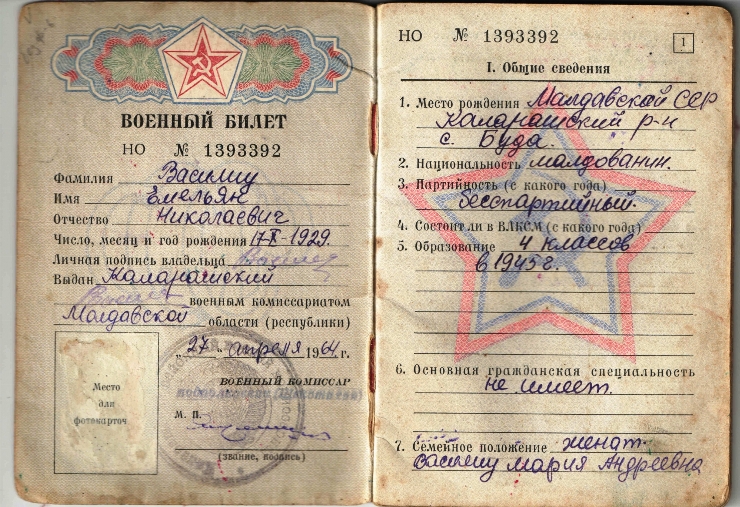 ВОЕННЫЙ БИЛЕТ
НО № 1393392
Фамилия Василиу
Имя Емельян
Отчество Николаевич
Число, месяц и год рождения 17-X-1929.
Личная подпись владельца Василиу
Выдан Каларашский
военным комиссариатом
Молдавской области (республики)
„27“ апреля 1964 г.
ВОЕННЫЙ КОМИССАР
М. П.
(звание, подпись)
Место
для
фотокарточ
НО № 1393392
1
I. Общие сведения
1. Место рождения Молдавской ССР
Каларашский р-н
с. Буда.
2. Национальность молдованин.
3. Партийность (с какого года)
бесспартийный.
4. Состоял ли в ВЛКСМ (с какого года)
5. Образование 4 классов
в 1945 г.
6. Основная гражданская специальность
не имеет.
7. Семейное положение женат
Василиу Мария Андреевна